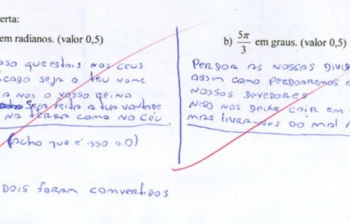 erta:
em radianos. (valor 0,5)
que estais nos ceus
seja o teu nome
a nos o vosso reino
Seja feita a tua vontade
NA TERRA COMO NO CÉU
(acho que é isso a.0)
DOIS foram comvertidos
b) 5π/3 em graus. (valor 0,5)
PERDOA AS NOSSAS DIVID
ASSIM COMO PERDOAREMOS
NOSSOS DEVEDORES
NÃO NOS DEIXE CAIR EM
MAS LIVRA-NOS DO MAL